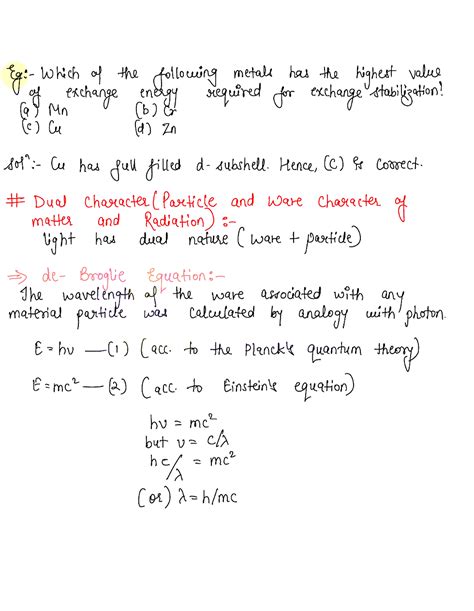 Eg:- Which of the following metals has the highest value
of exchange energy required for exchange stabilization?
(a) Mn (b) Cr
(c) Cu (d) Zn
Solⁿ:- Cu has full filled d-subshell. Hence, (C) is correct.
# Dual Character (Particle and Wave Character of
matter and Radiation) :-
light has dual nature (wave + particle)
⇒ de-Broglie Equation:-
The wavelength of the wave associated with any
material particle was calculated by analogy with photon.
E = hν —(1) (acc. to the Planck's quantum theory)
E = mc² —(2) (acc. to Einstein's equation)
hν = mc²
but ν = c/λ
hc/λ = mc²
(or) λ = h/mc